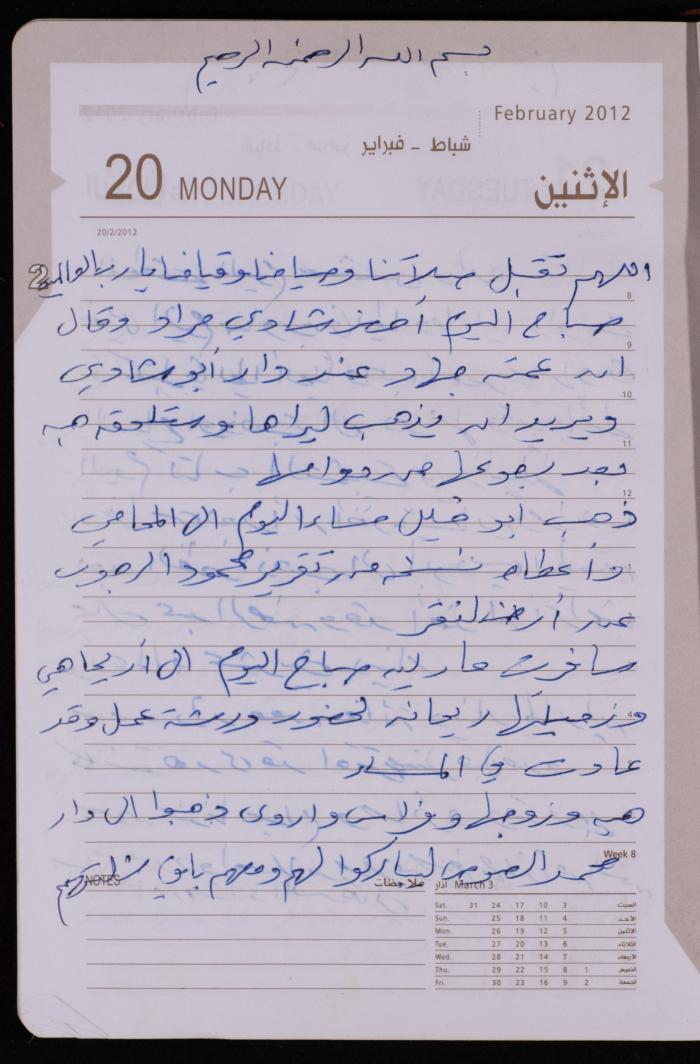 بسم الله الرحمن الرحيم
February 2012
شباط - فبراير
20 MONDAY الإثنين
20/2/2012
اللهم تقبل صلاتنا وصيامنا وقيامنا يا رب العالمين
8
صباح اليوم شادي مراد وقال
9
ان عمته جهاد عند دار أبو شادي
10
ويريد ان يذهب ليراها وستلحقه هبه
11
بعد
12
ذهب ابو مساء اليوم الى المحامي
وأعطاه نسخه من تقرير محمود الرجوب
عن أرض النقر
سافرت مارلين صباح اليوم الى أريحا هي
وزميلتها ريحانه لحضور ورشة عمل وقد
عادت في المساء
هبه وزوجها وفراس واروى ذهبوا الى دار
محمد الصوص ليباركوا لهم ومعهم باقي
Week 8
NOTES ملاحظات
March 3 آذار
Sat. 31 24 17 10 3 السبت
Sun. 25 18 11 4 الأحد
Mon. 26 19 12 5 الإثنين
Tue. 27 20 13 6 الثلاثاء
Wed. 28 21 14 7 الأربعاء
Thu. 29 22 15 8 1 الخميس
Fri. 30 23 16 9 2 الجمعة